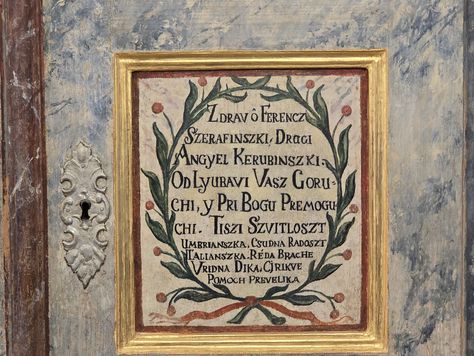 Zdrav ô Ferencz
Szerafinszki, Drugi
Angyel Kerubinszki.
Od Lyubavi Vasz Goru-
chi, y Pri Bogu Premogu
chi. Tiszi Szvitloszt
Umbrianszka, Csudna Radoszt
Italianszka. Réda Brache
Vridna Dika, Cjrikve
Pomoch Prevelika